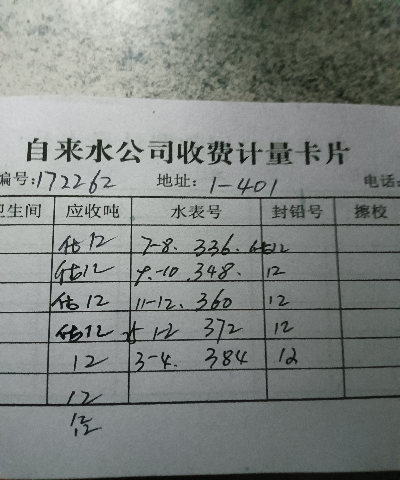 自来水公司收费计量卡片
编号:172262 地址: 1-401 电话:
卫生间 应收吨 水表号 封铅号 擦校
估12 7-8. 336. 估12
估12 9.-10. 348. 12
估12 11-12. 360 12
估12 1-2 372 12
12 3-4. 384 12
12